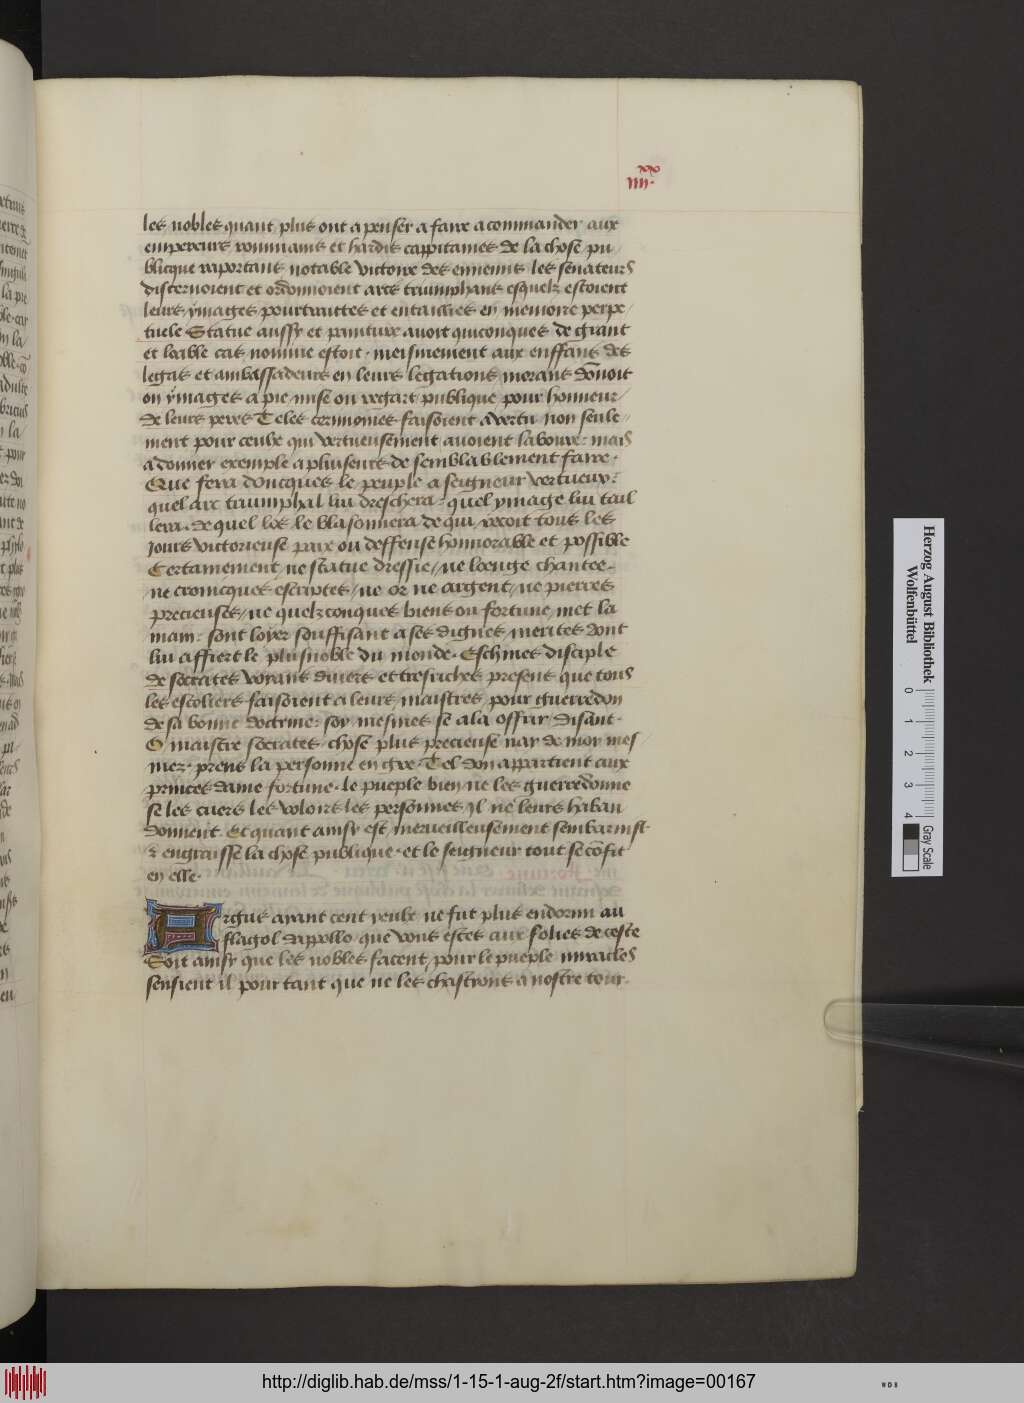 xxx
iiii.
les nobles quant plus ont a penser a faire a commander aux
empereurs rommains et hardis cappitaines de la chose pu
blicque raportans notable victoire des ennemis les senateurs
discernoient et ordonnoient arcs triumphans esquelz estoient
leurs ymages pourtraittes et entaillies en memoire perpe
tuele Statue aussy et painture avoit quiconques de grant
et loable cas nomme estoit . meismement aux enffans des
legas et ambassadeurs en leurs legations morans donnoit
on ymages a pie mise ou regart publique pour honneur
de leurs peres Teles cerimonies faisoient a vertu non seule
ment pour ceulx qui vertueusement avoient laboure : mais
a donner exemple a pluiseurs de semblablement faire .
Que fera doncques le peuple a seigneur vertueux :
quel arc triumphal lui dreschera : quel ymage lui tail
lera . de quel los le blasonnera de qui recoit tous les
jours victorieuse paix ou deffense honnorable et possible
Certainement ne statue dressie / ne loenge chantee .
ne cronicques escriptes / ne or ne argent / ne pierres
precieuses / ne quelzconques biens ou fortune met la
main : sont loyer souffisant a ses dignes merites dont
lui affiert le plus noble du monde . Eschines disciple
de socrates voyant divers et tres riches presens que tous
les escoliers faisoient a leurs maistres pour guerredon
de sa bonne doctrine : soy mesmes se ala offrir disant .
O maistre socrates . chose plus precieuse nay de moy mes
mez . prens la personne en gre . Tel don appartient aux
princes dame fortune . le pueple bien ne les guerredonne
se les cuers les voloirs les personnes yl ne leurs haban
donnent . Et quant ainsy est merveilleusement
& engraisse la chose publique . et le seigneur tout se confit
en elle .
Argus ayant cent yeulx ne fut plus endormi au
flagol dappollo que vous estes aux folies de ceste
Soit ainsy que les nobles facent pour le pueple miracles
sensient il pour tant que ne les chastrons a nostre tour .
Herzog August Bibliothek
Wolfenbüttel
0 1 2 3 4
Gray Scale
http://diglib.hab.de/mss/1-15-1-aug-2f/start.htm?image=00167
WDB